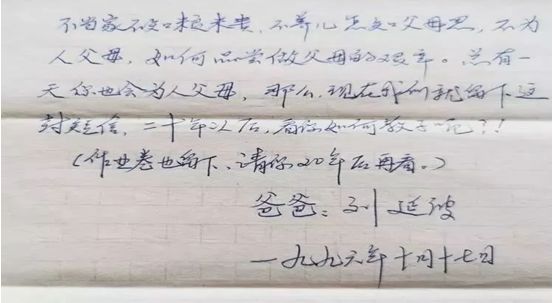 不当家不知柴米贵，不养儿怎知父母恩，不为
人父母，如何品尝做父母的艰辛。总有一
天你也会为人父母，那么，现在我们就留下这
封短信，二十年以后，看你如何教子吧？！
（作业卷也留下、请你20年后再看。）
爸爸：刘延波
一九九六年十月十七日